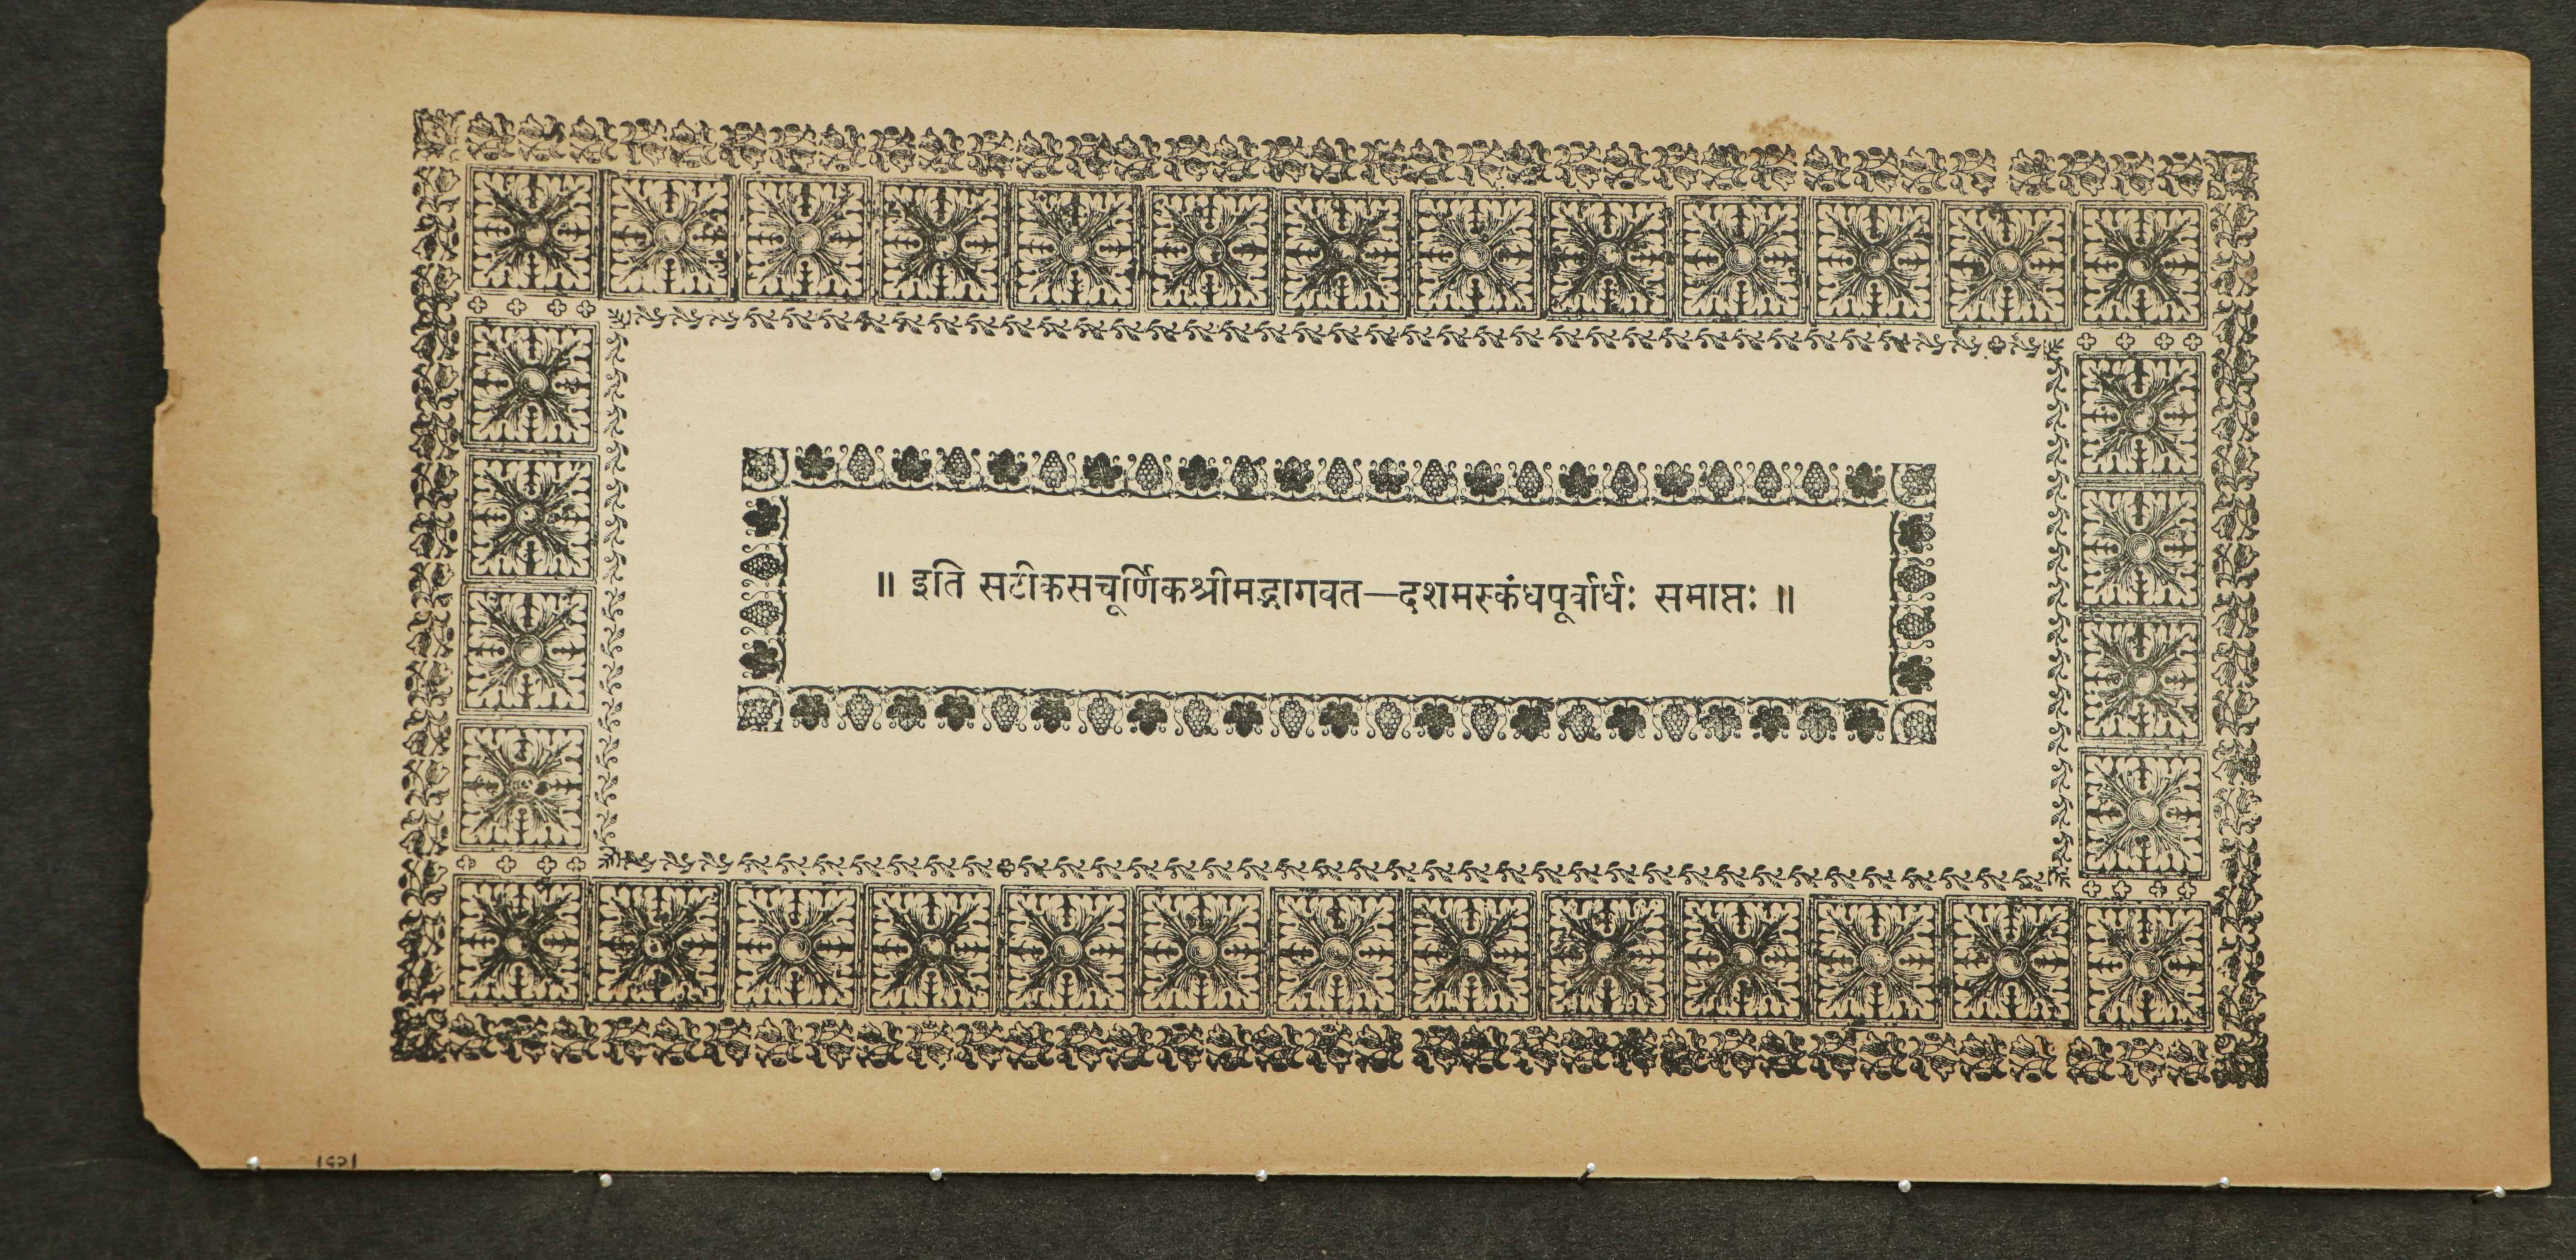 ॥ इति सटीकसचूर्णिकश्रीमद्भागवत—दशमस्कंधपूर्वार्धः समाप्तः ॥